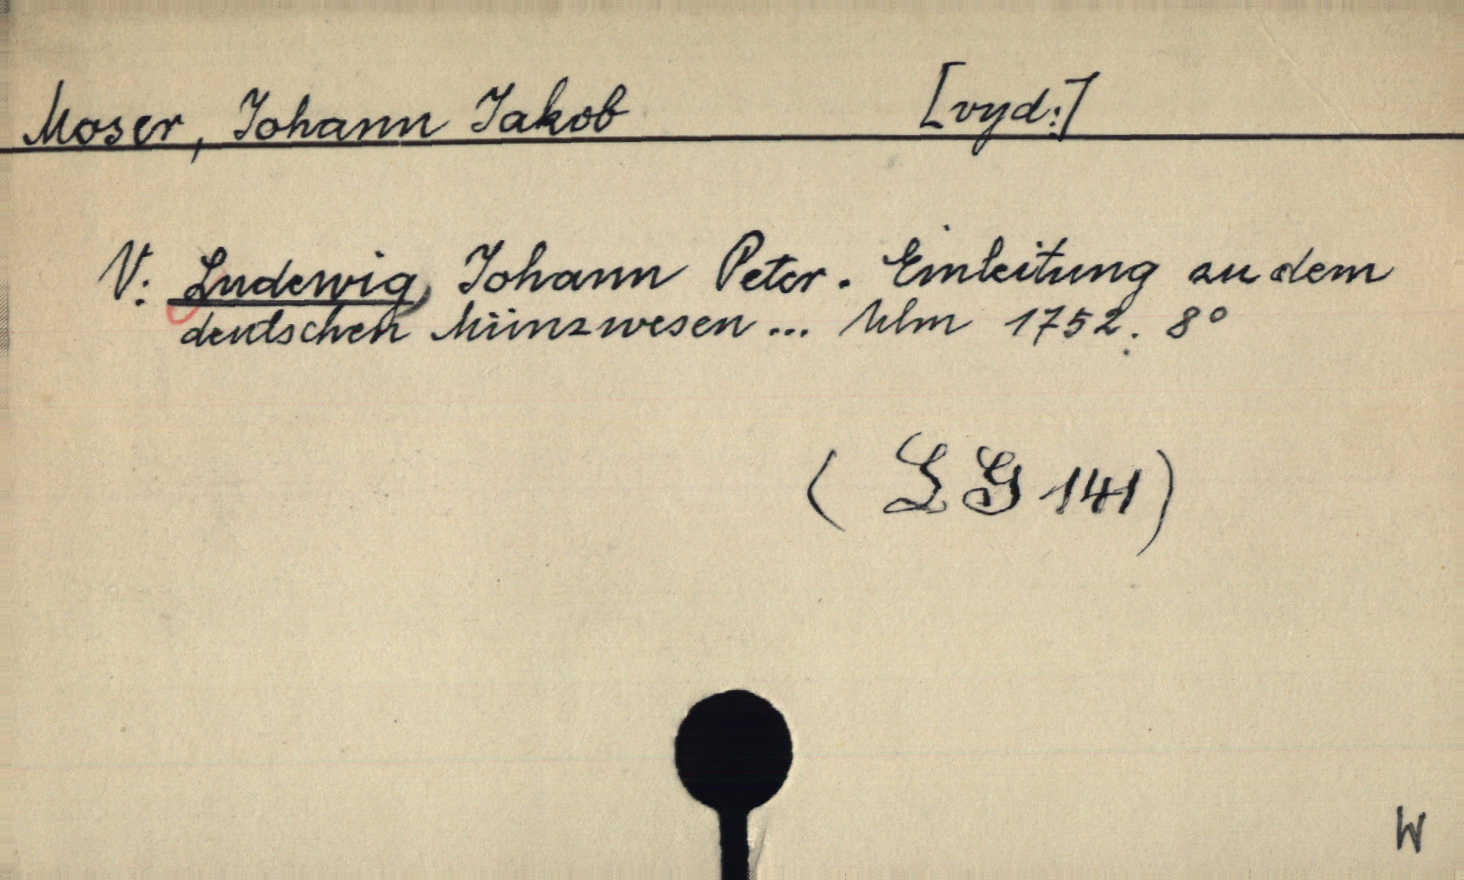 Moser, Johann Jakob [vyd:]
V: Ludewig, Johann Peter. Einleitung zu dem
deutschen Münzwesen ... Ulm 1752. 8°
( LG 141)
W